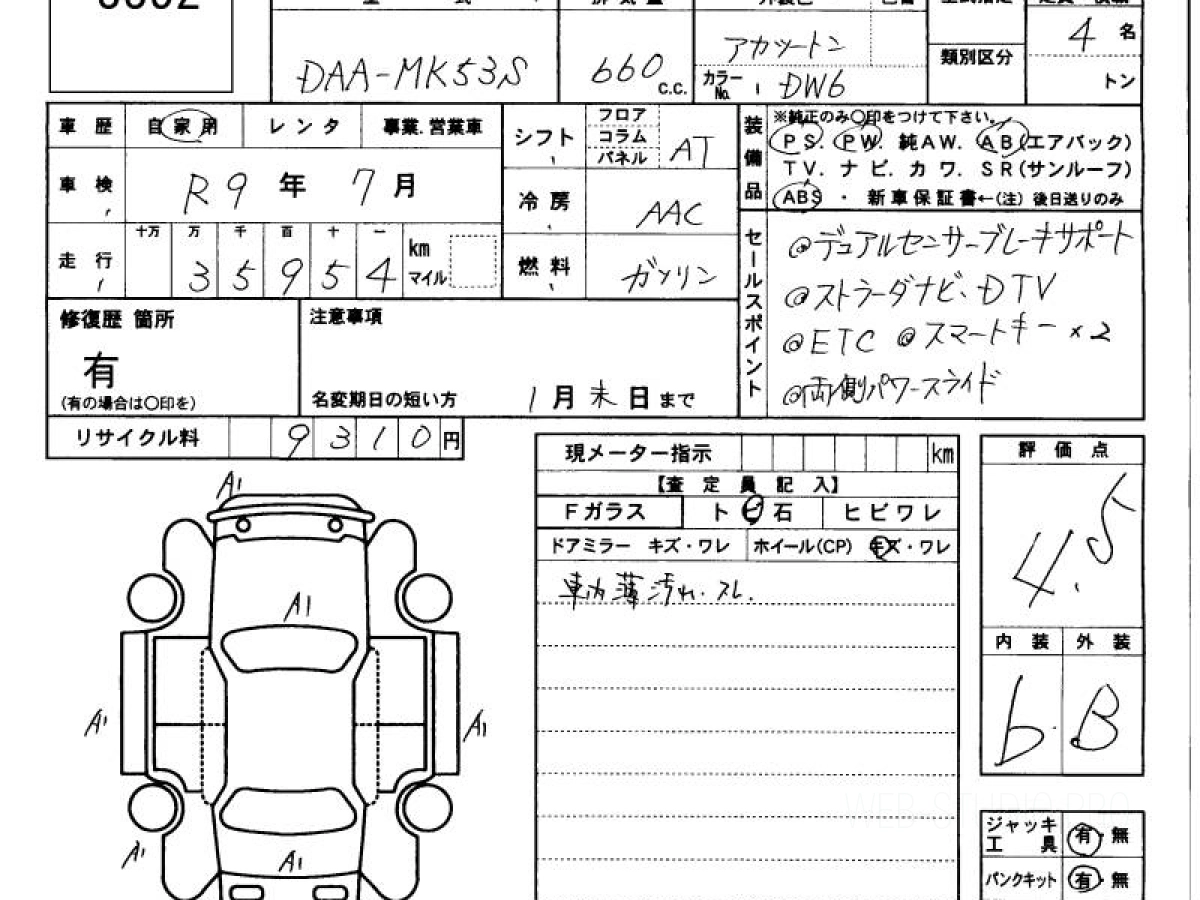 DAA-MK53S
660 c.c.
アカツートン
カラーNo. DW6
類別区分
4 名
トン
車歴 自家用 レンタ 事業.営業車
車検 R9年 7月
走行 十万 万 千 百 十 一
35954 km マイル
シフト フロア コラム パネル AT
冷房 AAC
燃料 ガソリン
装備品
※純正のみ〇印をつけて下さい。
PS. PW. 純AW. AB(エアバック)
TV. ナビ. カワ. SR(サンルーフ)
ABS ・ 新車保証書←(注) 後日送りのみ
セールスポイント
@デュアルセンサーブレーキサポート
@ストラーダナビ、DTV
@ETC @スマートキー×2
@両側パワースライド
修復歴 箇所
有
(有の場合は〇印を)
注意事項
名変期日の短い方 1月末日まで
リサイクル料 9310円
現メーター指示 km
【査定員記入】
Fガラス トビ石 ヒビワレ
ドアミラー キズ・ワレ ホイール(CP) キズ・ワレ
車内薄汚れ.スレ.
評価点
4.5
内装 外装
b B
A1
A1
A1 A1
A1
A1
ジャッキ工具 有・無
パンクキット 有・無